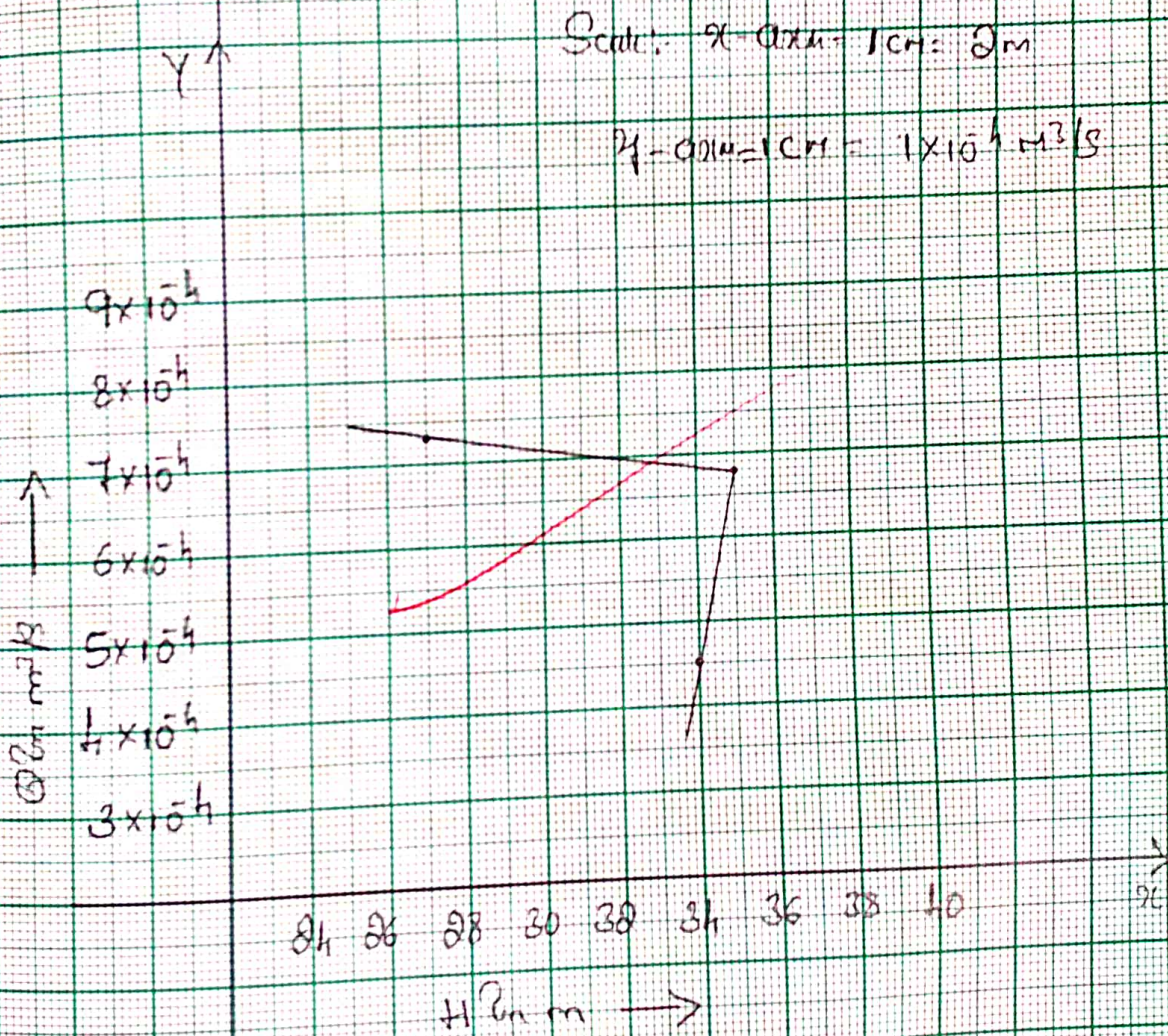 Scale: x-axis- 1cm= 2m
Y
y-axis=1cm = 1×10⁻⁴ m³/s
9×10⁻⁴
8×10⁻⁴
7×10⁻⁴
6×10⁻⁴
5×10⁻⁴
4×10⁻⁴
3×10⁻⁴
Q in m³/s
24 26 28 30 32 34 36 38 40
x
H in m